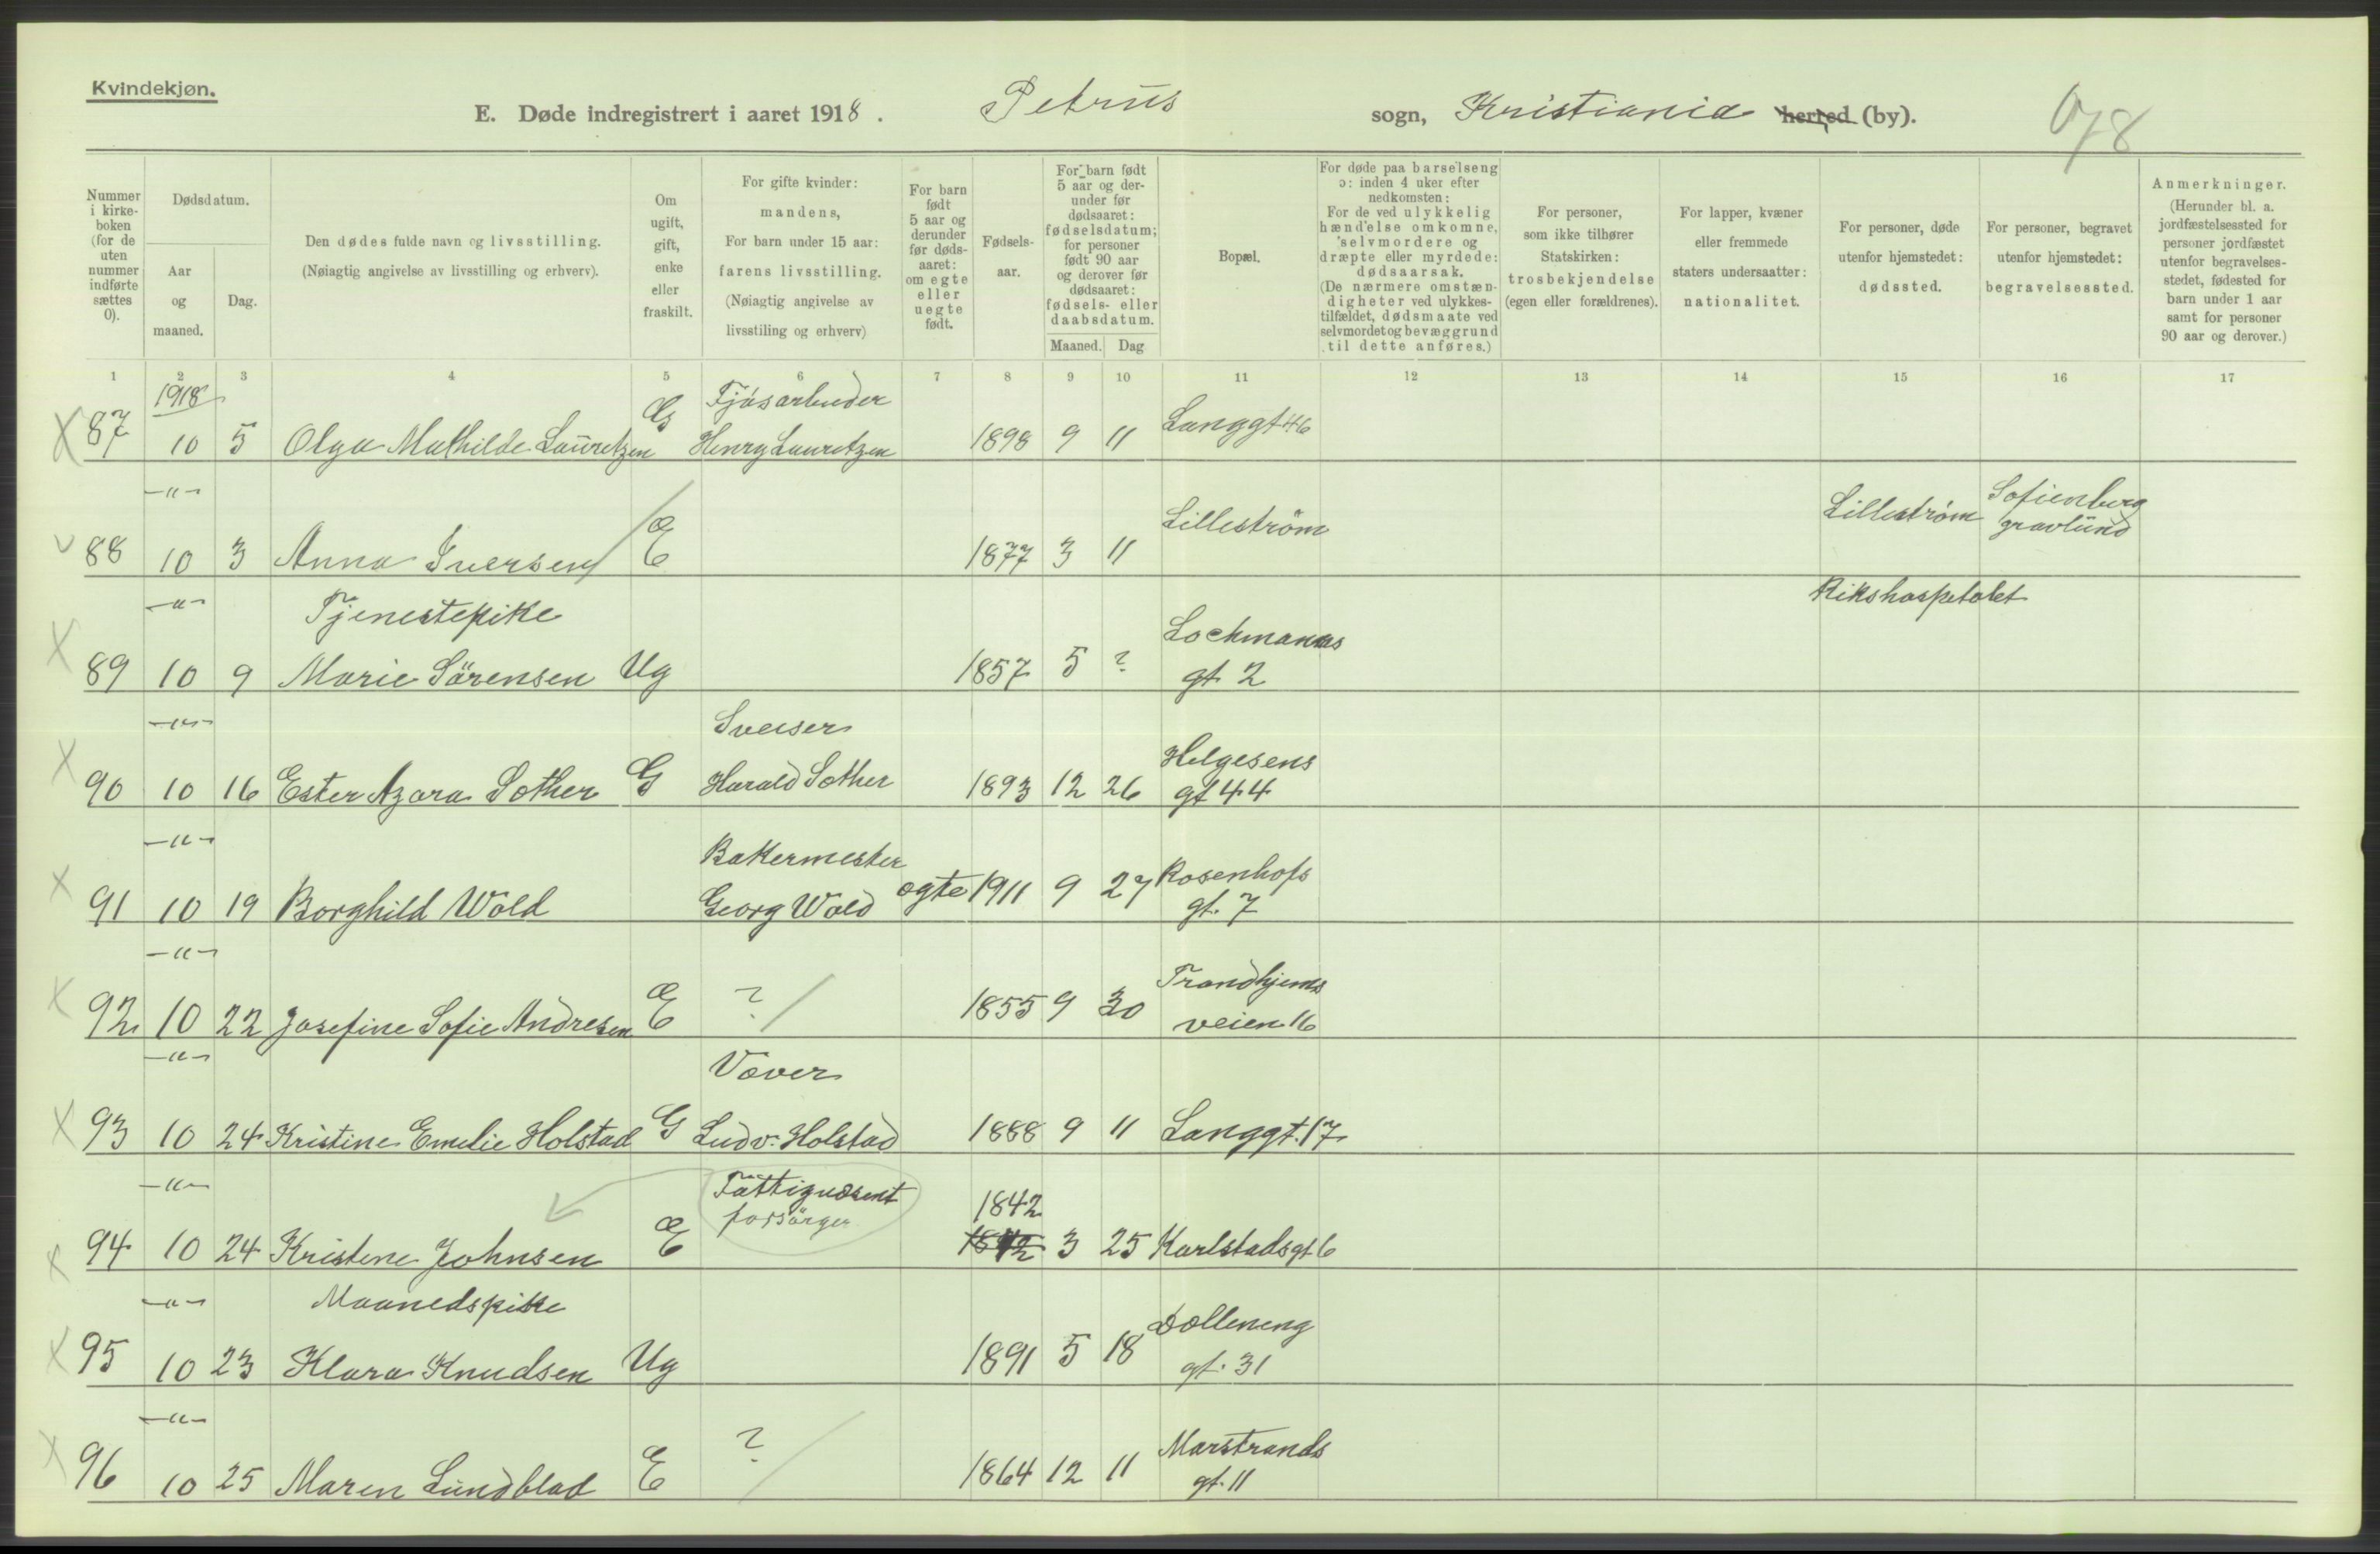 Kvindekjøn.
E. Døde indregistrert i aaret 1918. Petrus sogn, Kristiania herred (by).
Nummer i kirkeboken (for de uten nummer indførte sættes 0).
Dødsdatum.
Aar og maaned.
Dag.
Den dødes fulde navn og livsstilling.
(Nøiagtig angivelse av livsstilling og erhverv).
Om ugift, gift, enke eller fraskilt.
For gifte kvinder: mandens,
For barn under 15 aar: farens livsstilling.
(Nøiagtig angivelse av livsstiling og erhverv)
For barn født 5 aar og derunder før dødsaaret: om egte eller uegte født.
Fødselsaar.
For barn født 5 aar og derunder før dødsaaret: fødselsdatum; for personer født 90 aar og derover før dødsaaret: fødsels- eller daabsdatum.
Maaned. Dag
Bopæl.
For døde paa barselseng ɔ: inden 4 uker efter nedkomsten:
For de ved ulykkelig hændelse omkomne, selvmordere og dræpte eller myrdede: dødsaarsak.
(De nærmere omstændigheter ved ulykkestilfældet, dødsmaate ved selvmord et og bevæggrund til dette anføres.)
For personer, som ikke tilhører Statskirken: trosbekjendelse (egen eller forældrenes).
For lapper, kvæner eller fremmede staters undersaatter: nationalitet.
For personer, døde utenfor hjemstedet: dødssted.
For personer, begravet utenfor hjemstedet: begravelsessted.
Anmerkninger.
(Herunder bl. a. jordfæstelsessted for personer jordfæstet utenfor begravelsesstedet, fødested for barn under 1 aar samt for personer 90 aar og derover.)
1 2 3 4 5 6 7 8 9 10 11 12 13 14 15 16 17
1918
Fjøsarbeider
87 10 5 Olga Mathilde Lauretzen G Henry Lauretzen 1898 9 11 Langgt 46
—"—
88 10 3 Anna Iversen Æ E 1877 3 11 Lilleström Lilleström Sofienberg gravlund
—"— Tjenestepike Rikshospitalet
89 10 9 Marie Sörensen Ug 1857 5 ? Lochmanns gt. 2
—"— Sveiser
90 10 16 Ester Azora Sother G Harald Sother 1893 12 26 Helgesens gt 44
—"— Bakermester
91 10 19 Borghild Wold Georg Wold ægte 1911 9 27 Rosenhofs gt. 7
—"—
92 10 22 Josefine Sofie Andresen Æ E ? 1855 9 30 Trondhjems veien 16
—"— Væver
93 10 24 Kristine Emelie Holstad G Ludv. Holstad 1888 9 11 Langgt. 17
—"— Fattigvæsent forsörger 1842
94 10 24 Kristene Johnsen Æ E 3 25 Karlstadsgt 6
—"— Maanedspike
95 10 23 Klara Knudsen Ug 1891 5 18 Dælleneng gt. 31
—"—
96 10 25 Maren Lundblad Æ E ? 1864 12 11 Marstrands gt. 11